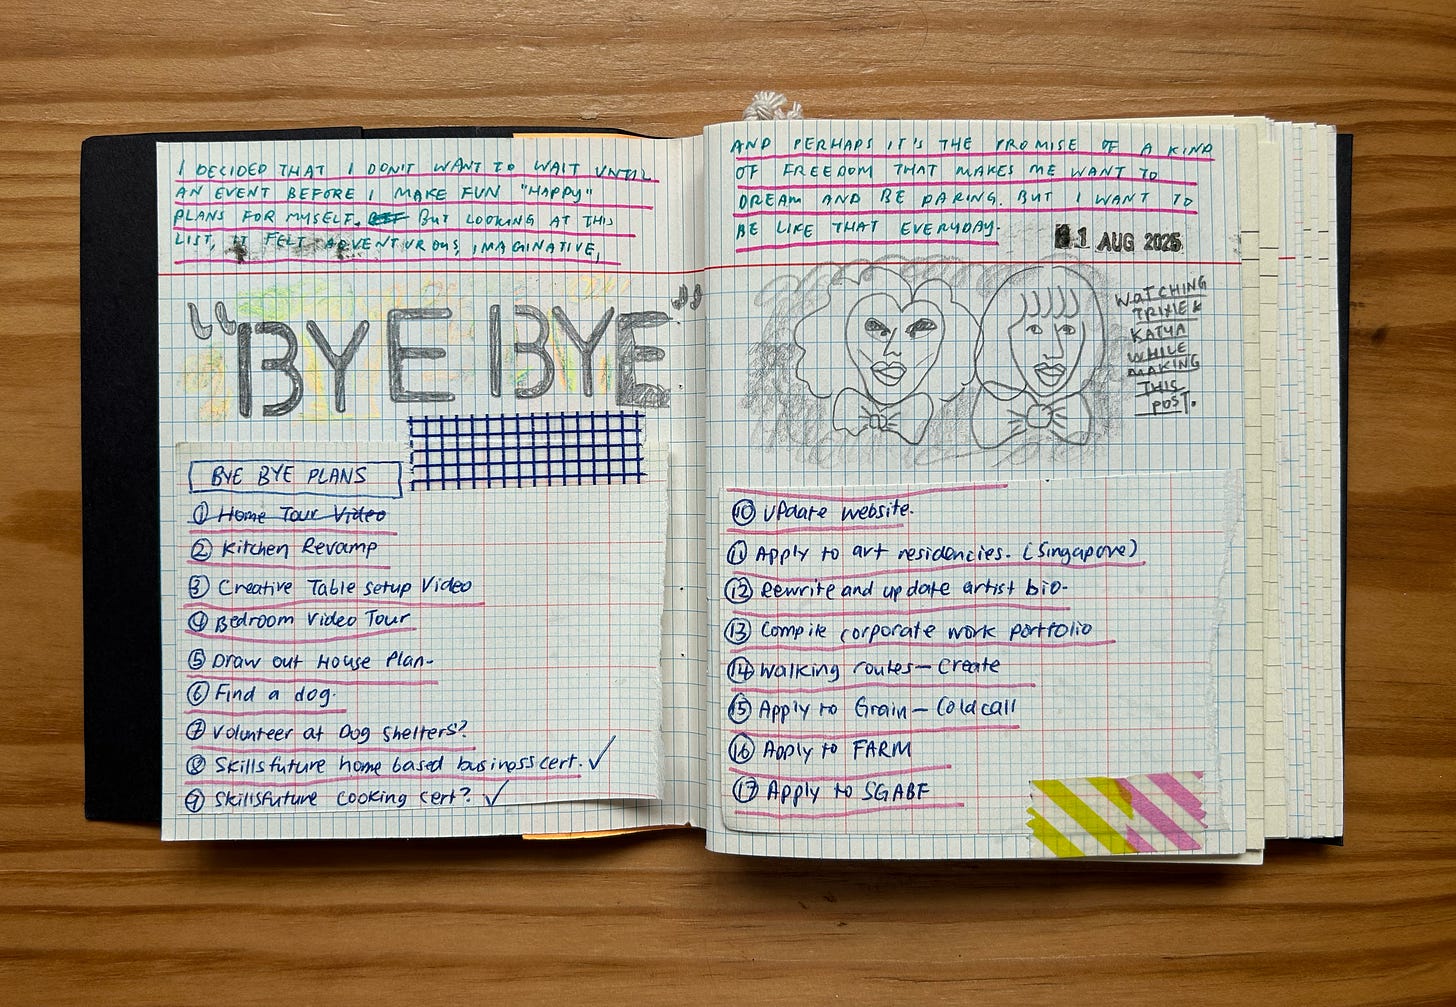 I DECIDED THAT I DON'T WANT TO WAIT UNTIL
AN EVENT BEFORE I MAKE FUN "HAPPY"
PLANS FOR MYSELF. BUT LOOKING AT THIS
LIST, IT FELT ADVENTUROUS, IMAGINATIVE,
"BYE BYE"
BYE BYE PLANS
① Home Tour Video
② Kitchen Revamp
③ Creative Table setup Video
④ Bedroom Video Tour
⑤ Draw out House Plan-
⑥ Find a dog.
⑦ Volunteer at Dog Shelters?
⑧ Skillsfuture home based business cert. ✓
⑨ Skillsfuture Cooking cert? ✓
AND PERHAPS IT'S THE PROMISE OF A KIND
OF FREEDOM THAT MAKES ME WANT TO
DREAM AND BE DARING. BUT I WANT TO
BE LIKE THAT EVERYDAY.
1 AUG 2025
WATCHING
TRIXIE &
KATYA
WHILE
MAKING
THIS
POST.
⑩ Update website.
⑪ Apply to art residencies. (Singapore)
⑫ Rewrite and update artist bio-
⑬ Compile corporate work portfolio
⑭ Walking routes – Create
⑮ Apply to Grain – Cold call
⑯ Apply to FARM
⑰ Apply to SGABF